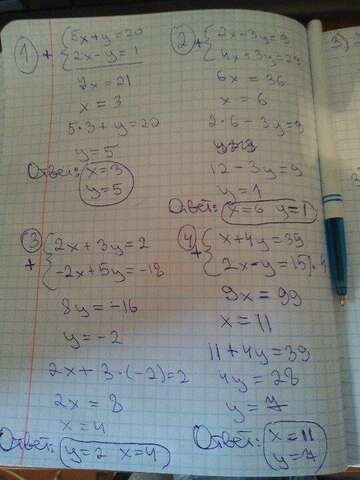 1) + { 5x + y = 20
2x - y = 1
7x = 21
x = 3
5·3 + y = 20
y = 5
Ответ: x = 3
y = 5
2) + { 2x - 3y = 9
4x + 3y = 27
6x = 36
x = 6
2·6 - 3y = 9
12 - 3y = 9
y = 1
Ответ: x = 6 y = 1
3) + { 2x + 3y = 2
-2x + 5y = -18
8y = -16
y = -2
2x + 3·(-2) = 2
2x = 8
x = 4
Ответ: y = 2 x = 4
4) + { x + 4y = 39
2x - y = 15 |·4
9x = 99
x = 11
11 + 4y = 39
4y = 28
y = 7
Ответ: x = 11
y = 7